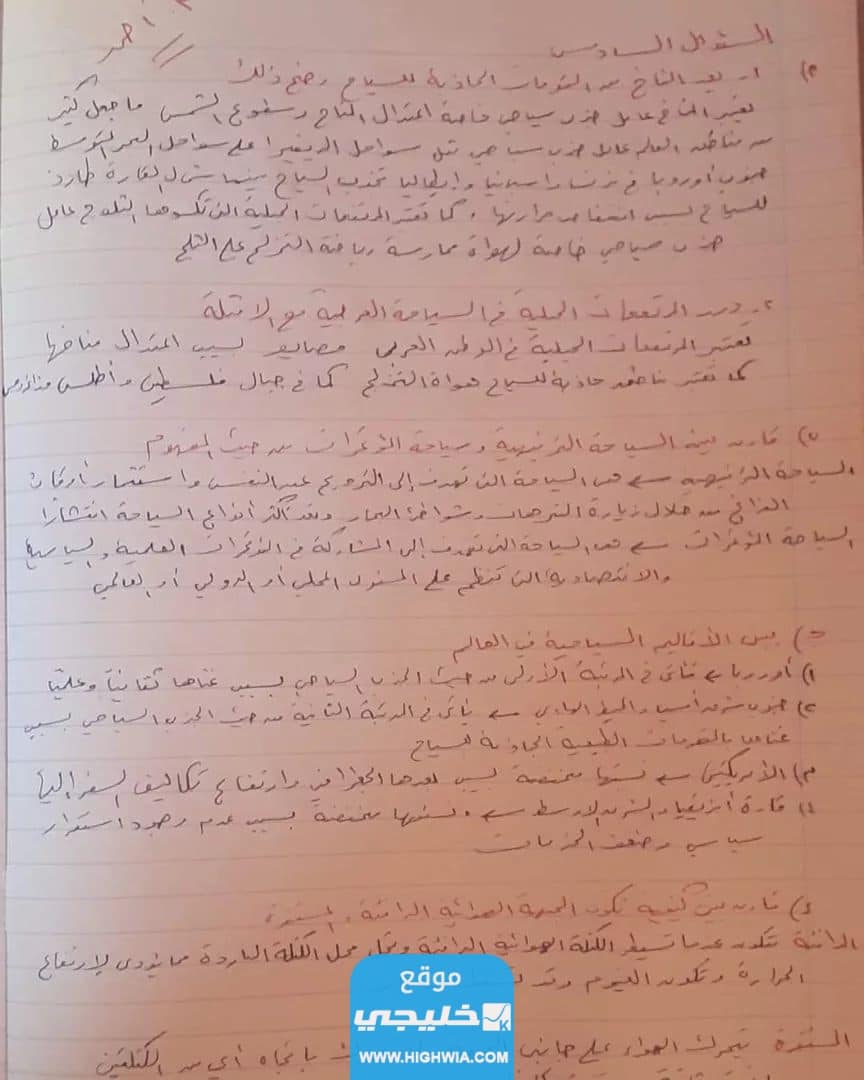 السؤال السادس
٥) ١. يعد المناخ من المقومات الجاذبة للسياح وضح ذلك
يعتبر المناخ عامل جذب سياحي خاصة اعتدال المناخ وسطوع الشمس ما جعل كثير
من مناطق العالم عامل جذب سياحي مثل سواحل الريفيرا على سواحل البحر المتوسط
جنوب أوروبا في فرنسا واسبانيا وإيطاليا تجذب السياح بينما شمال القارة طارد
للسياح بسبب انخفاض حرارتها ، كما تعتبر المرتفعات الجبلية التي تكسوها الثلوج عامل
جذب سياحي خاصة لهواة ممارسة رياضة التزلج على الثلج
٢. دور المرتفعات الجبلية في السياحة العربية مع الامثلة
تعتبر المرتفعات الجبلية في الوطن العربي مصايف بسبب اعتدال مناخها
كما تعتبر مناطق جاذبة للسياح هواة التزلج كما في جبال فلسطين وأطلس
ب) قارن بين السياحة الترفيهية وسياحة المؤتمرات من حيث المفهوم
السياحة الترفيهية هي السياحة التي تهدف إلى الترويح عن النفس واستثمار أوقات
الفراغ من خلال زيارة المتنزهات وشواطئ البحار وتعد أكثر أنواع السياحة انتشارًا
السياحة المؤتمرات هي السياحة التي تهدف إلى المشاركة في المؤتمرات العلمية والسياسية
والاقتصادية التي تنظم على المستوى المحلي أو الدولي أو العالمي
ج) بين الأقاليم السياحية في العالم
١) أوروبا تأتي في المرتبة الأولى من حيث الجذب السياحي بسبب غناها ثقافيًا وعلميًا
٢) جنوب شرق أسيا والمحيط الهادي يأتي في المرتبة الثانية من حيث الجذب السياحي بسبب
غناها بالمقومات الطبيعية الجاذبة للسياح
٣) الأمريكيتين نسبتها منخفضة بسبب بعدها الجغرافي وارتفاع تكاليف السفر إليها
٤) قارة أفريقيا والشرق الاوسط ونسبتها منخفضة بسبب عدم وجود استقرار
سياسي وضعف الخدمات
٤) قارن بين كيفية تكون الجبهة الهوائية الدافئة والمستقرة
الدافئة تتكون عندما تسيطر الكتلة الهوائية الدافئة وتحل محل الكتلة الباردة مما يؤدي لارتفاع
الحرارة وتكون الغيوم وقد
المستقرة يتحرك الهواء على جانبي باتجاه أي من الكتلتين
موقع
خليجي
WWW.HIGHWIA.COM